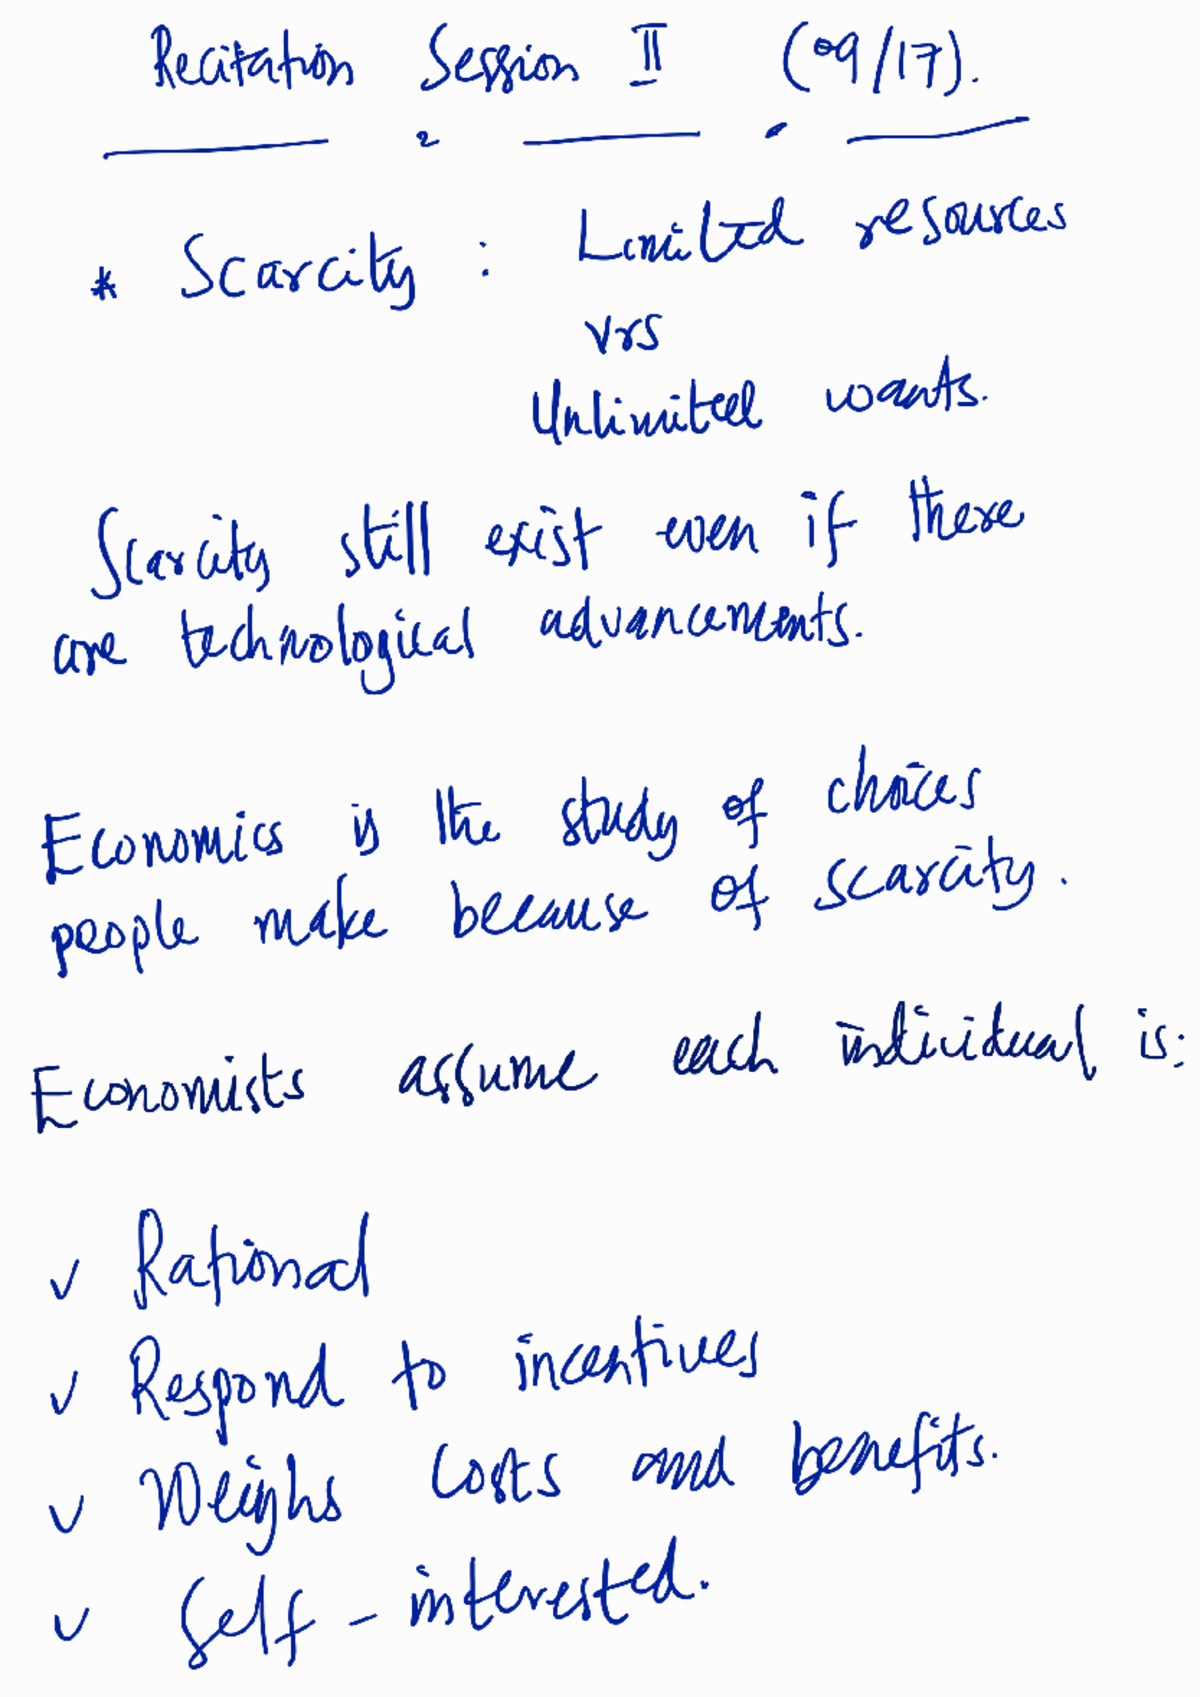 Recitation Session II (09/17).
* Scarcity : Limited resources
vrs
Unlimited wants.
Scarcity still exist even if there
are technological advancements.
Economics is the study of choices
people make because of scarcity.
Economists assume each individual is:
✓ Rational
✓ Respond to incentives
✓ Weighs costs and benefits.
✓ Self-interested.